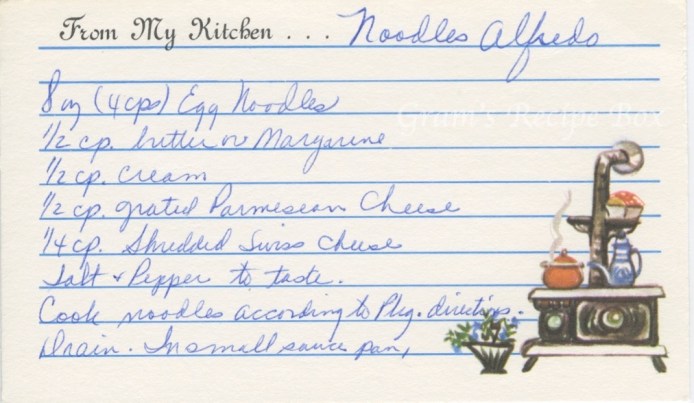 From My Kitchen . . . Noodles Alfredo
Gram's Recipe Box
8 oz (4 cps) Egg Noodles
1/2 cp. butter or Margarine
1/2 cp. cream
1/2 cp. grated Parmesean Cheese
1/4 cp. Shredded Swiss cheese
Salt + Pepper to taste.
Cook noodles according to Pkg. directions.
Drain. In small sauce pan,